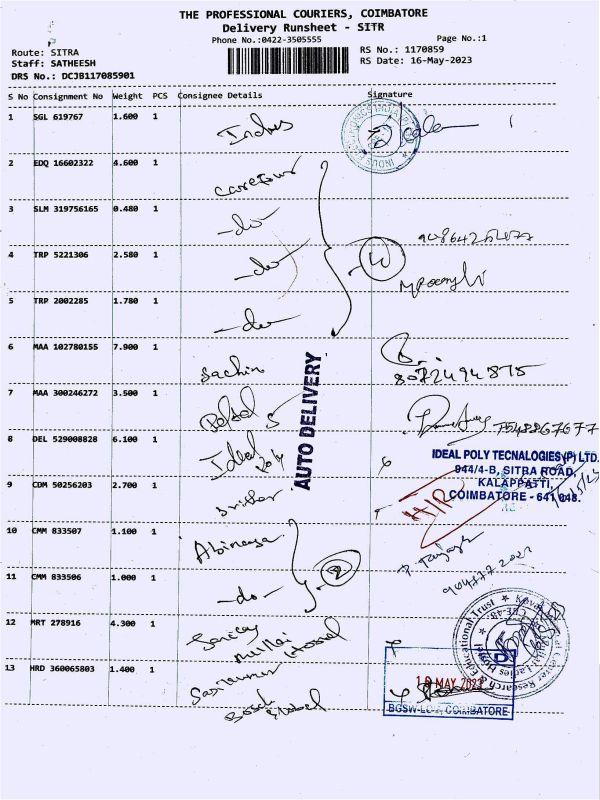 THE PROFESSIONAL COURIERS, COIMBATORE
Delivery Runsheet - SITR
Phone No.:0422-3505555
Page No.:1
Route: SITRA
RS No.: 1170859
Staff: SATHEESH
RS Date: 16-May-2023
DRS No.: DCJB117085901
S No Consignment No Weight PCS Consignee Details Signature
1 SGL 619767 1.600 1 Indus
2 EDQ 16602322 4.600 1 Carefour
3 SLM 319756165 0.480 1 -do-
4 TRP 5221306 2.580 1 -do-
5 TRP 2002285 1.780 1 -do-
6 MAA 102780155 7.900 1 Sachin
8072494875
7 MAA 300246272 3.500 1
7548867677
AUTO DELIVERY
8 DEL 529008828 6.100 1 Ideal Poly
IDEAL POLY TECNALOGIES(P) LTD.
944/4-B, SITRA ROAD,
KALAPPATTI,
COIMBATORE - 641 048.
9 CDM 50256203 2.700 1
10 CMM 833507 1.100 1 Abinaya
11 CMM 833506 1.000 1 -do-
12 MRT 278916 4.300 1
Mullai Hostel
13 HRD 360065803 1.400 1
Bosch Global
MAY 2023
BGSW-LOG, COIMBATORE